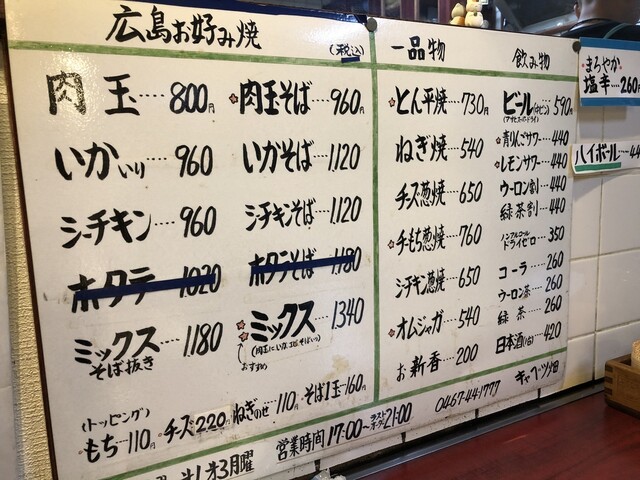 広島お好み焼
(税込)
肉玉…800円
肉玉そば…960円
いか入り 960
いかそば…1,120
シーチキン…960
シーチキンそば…1,120
ホタテ 1,020
ホタテそば 1,180
ミックス…1,180
そば抜き
ミックス…1340
おすすめ
(トッピング)
もち…110円 チーズ220円 ねぎのせ…110円 そば1玉…160円
営業時間17:00〜ラストオーダー21:00
第1第3月曜
一品物
とん平焼…730円
ねぎ焼…540
チーズ葱焼…650
チーもち葱焼…760
シーチキン葱焼…650
オムジャガ…540
お新香…200
飲み物
ビール(中ビン)…590円
(アサヒスーパードライ)
青りんごサワー…440
レモンサワー…440
ウーロン割…440
緑茶割…440
ノンアルコール
ドライゼロ…350
コーラ…260
ウーロン茶…260
緑茶…260
日本酒(1合)…420
キャベツ畑
0467-44-1777
まろやか
塩辛…260円
ハイボール…44